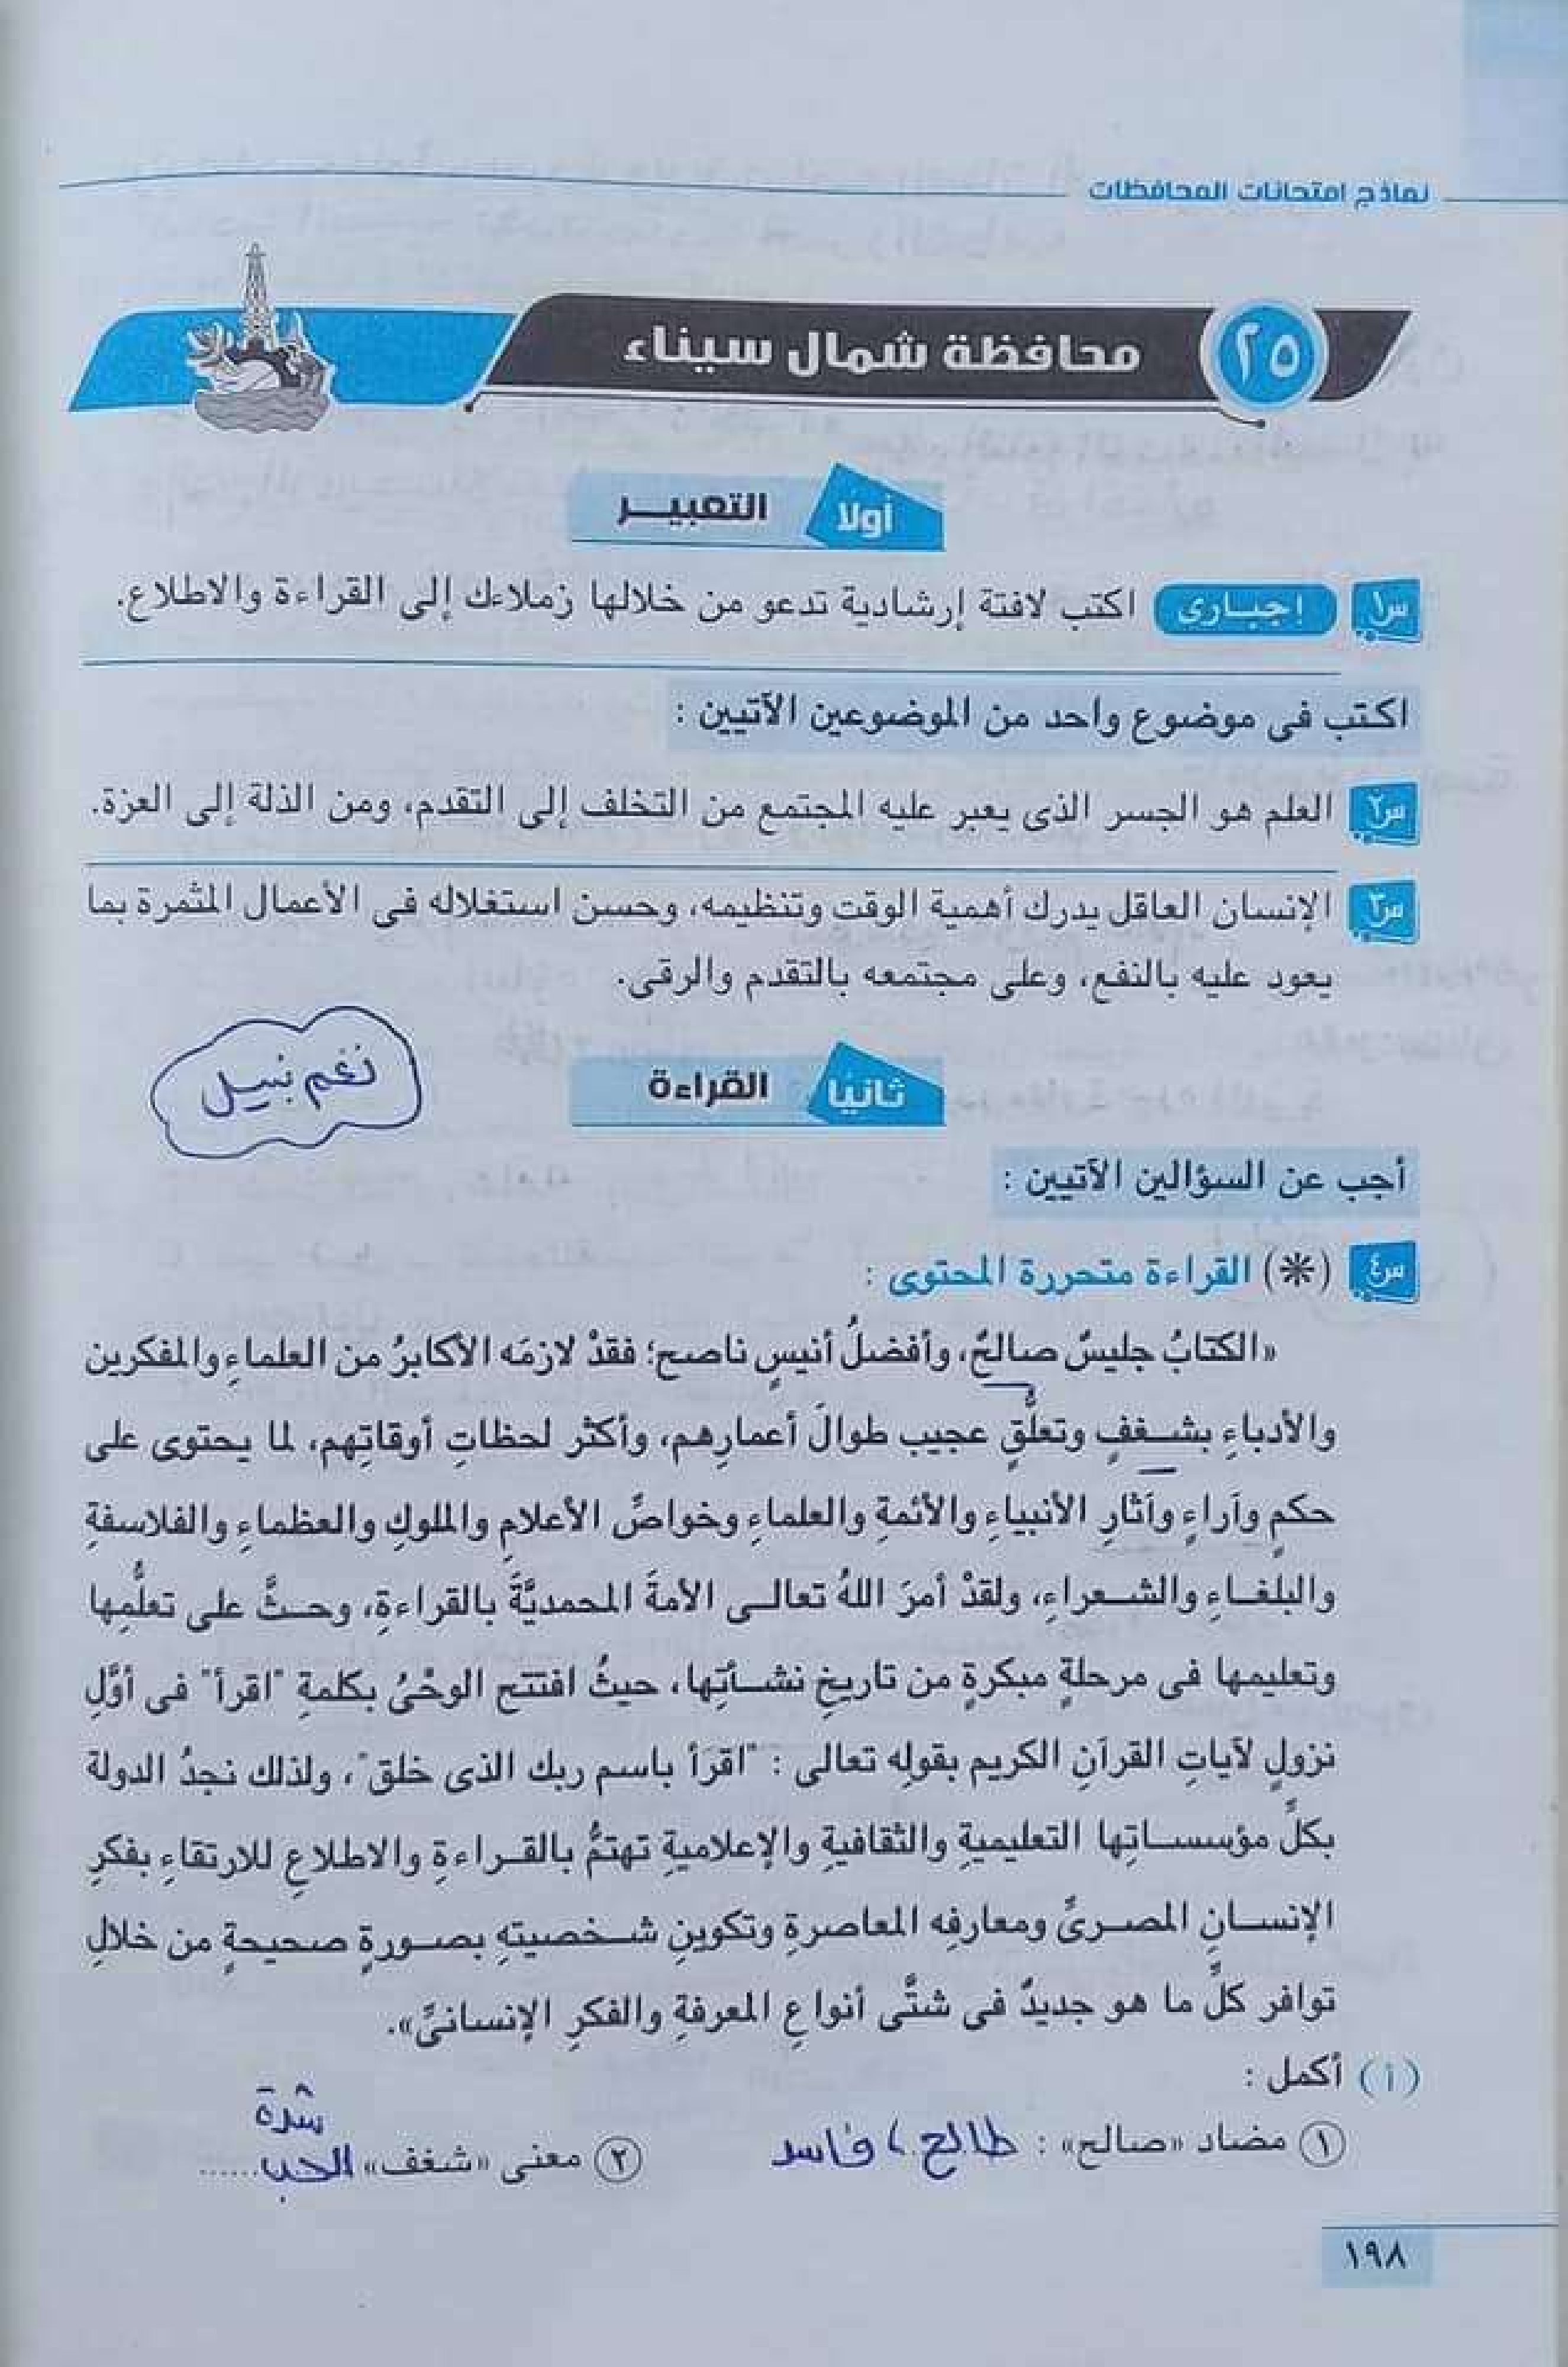 نماذج امتحانات المحافظات
٢٥ محافظة شمال سيناء
أولا التعبيـــر
س١ إجبـارى اكتب لافتة إرشادية تدعو من خلالها زملاءك إلى القراءة والاطلاع.
اكتب فى موضوع واحد من الموضوعين الآتيين :
س٢ العلم هو الجسر الذى يعبر عليه المجتمع من التخلف إلى التقدم، ومن الذلة إلى العزة.
س٣ الإنسان العاقل يدرك أهمية الوقت وتنظيمه، وحسن استغلاله فى الأعمال المثمرة بما
يعود عليه بالنفع، وعلى مجتمعه بالتقدم والرقى.
نغم نبيل
ثانيًا القراءة
أجب عن السؤالين الآتيين :
س٤ (*) القراءة متحررة المحتوى :
«الكتابُ جليسٌ صالحٌ، وأفضلُ أنيسٍ ناصح؛ فقدْ لازمَه الأكابرُ من العلماءِ والمفكرين
والأدباءِ بشـغفٍ وتعلُّقٍ عجيب طوالَ أعمارِهم، وأكثر لحظاتِ أوقاتِهم، لما يحتوى على
حكمٍ وآراءٍ وآثارِ الأنبياءِ والأئمةِ والعلماءِ وخواصِّ الأعلامِ والملوكِ والعظماءِ والفلاسفةِ
والبلغـاءِ والشـعراءِ، ولقدْ أمرَ اللهُ تعالـى الأمةَ المحمديَّةَ بالقراءةِ، وحـثَّ على تعلُّمِها
وتعليمها فى مرحلةٍ مبكرةٍ من تاريخِ نشـأتِها، حيثُ افتتح الوحْىُ بكلمةِ "اقرأ" فى أوَّلِ
نزولٍ لآياتِ القرآنِ الكريم بقولِه تعالى : "اقرَأ باسم ربك الذى خلق"، ولذلك نجدُ الدولة
بكلِّ مؤسسـاتِها التعليميةِ والثقافيةِ والإعلاميةِ تهتمُّ بالقـراءةِ والاطلاعِ للارتقاءِ بفكرِ
الإنسـانِ المصـرىِّ ومعارفِه المعاصرةِ وتكوينِ شـخصيتهِ بصـورةٍ صحيحةٍ من خلالِ
توافر كلِّ ما هو جديدٌ فى شتَّى أنواعِ المعرفةِ والفكرِ الإنسانىِّ».
(أ) أكمل :
١ مضاد «صالح» : طالح، فاسد ٢ معنى «شغف» شدة الحب ......
١٩٨